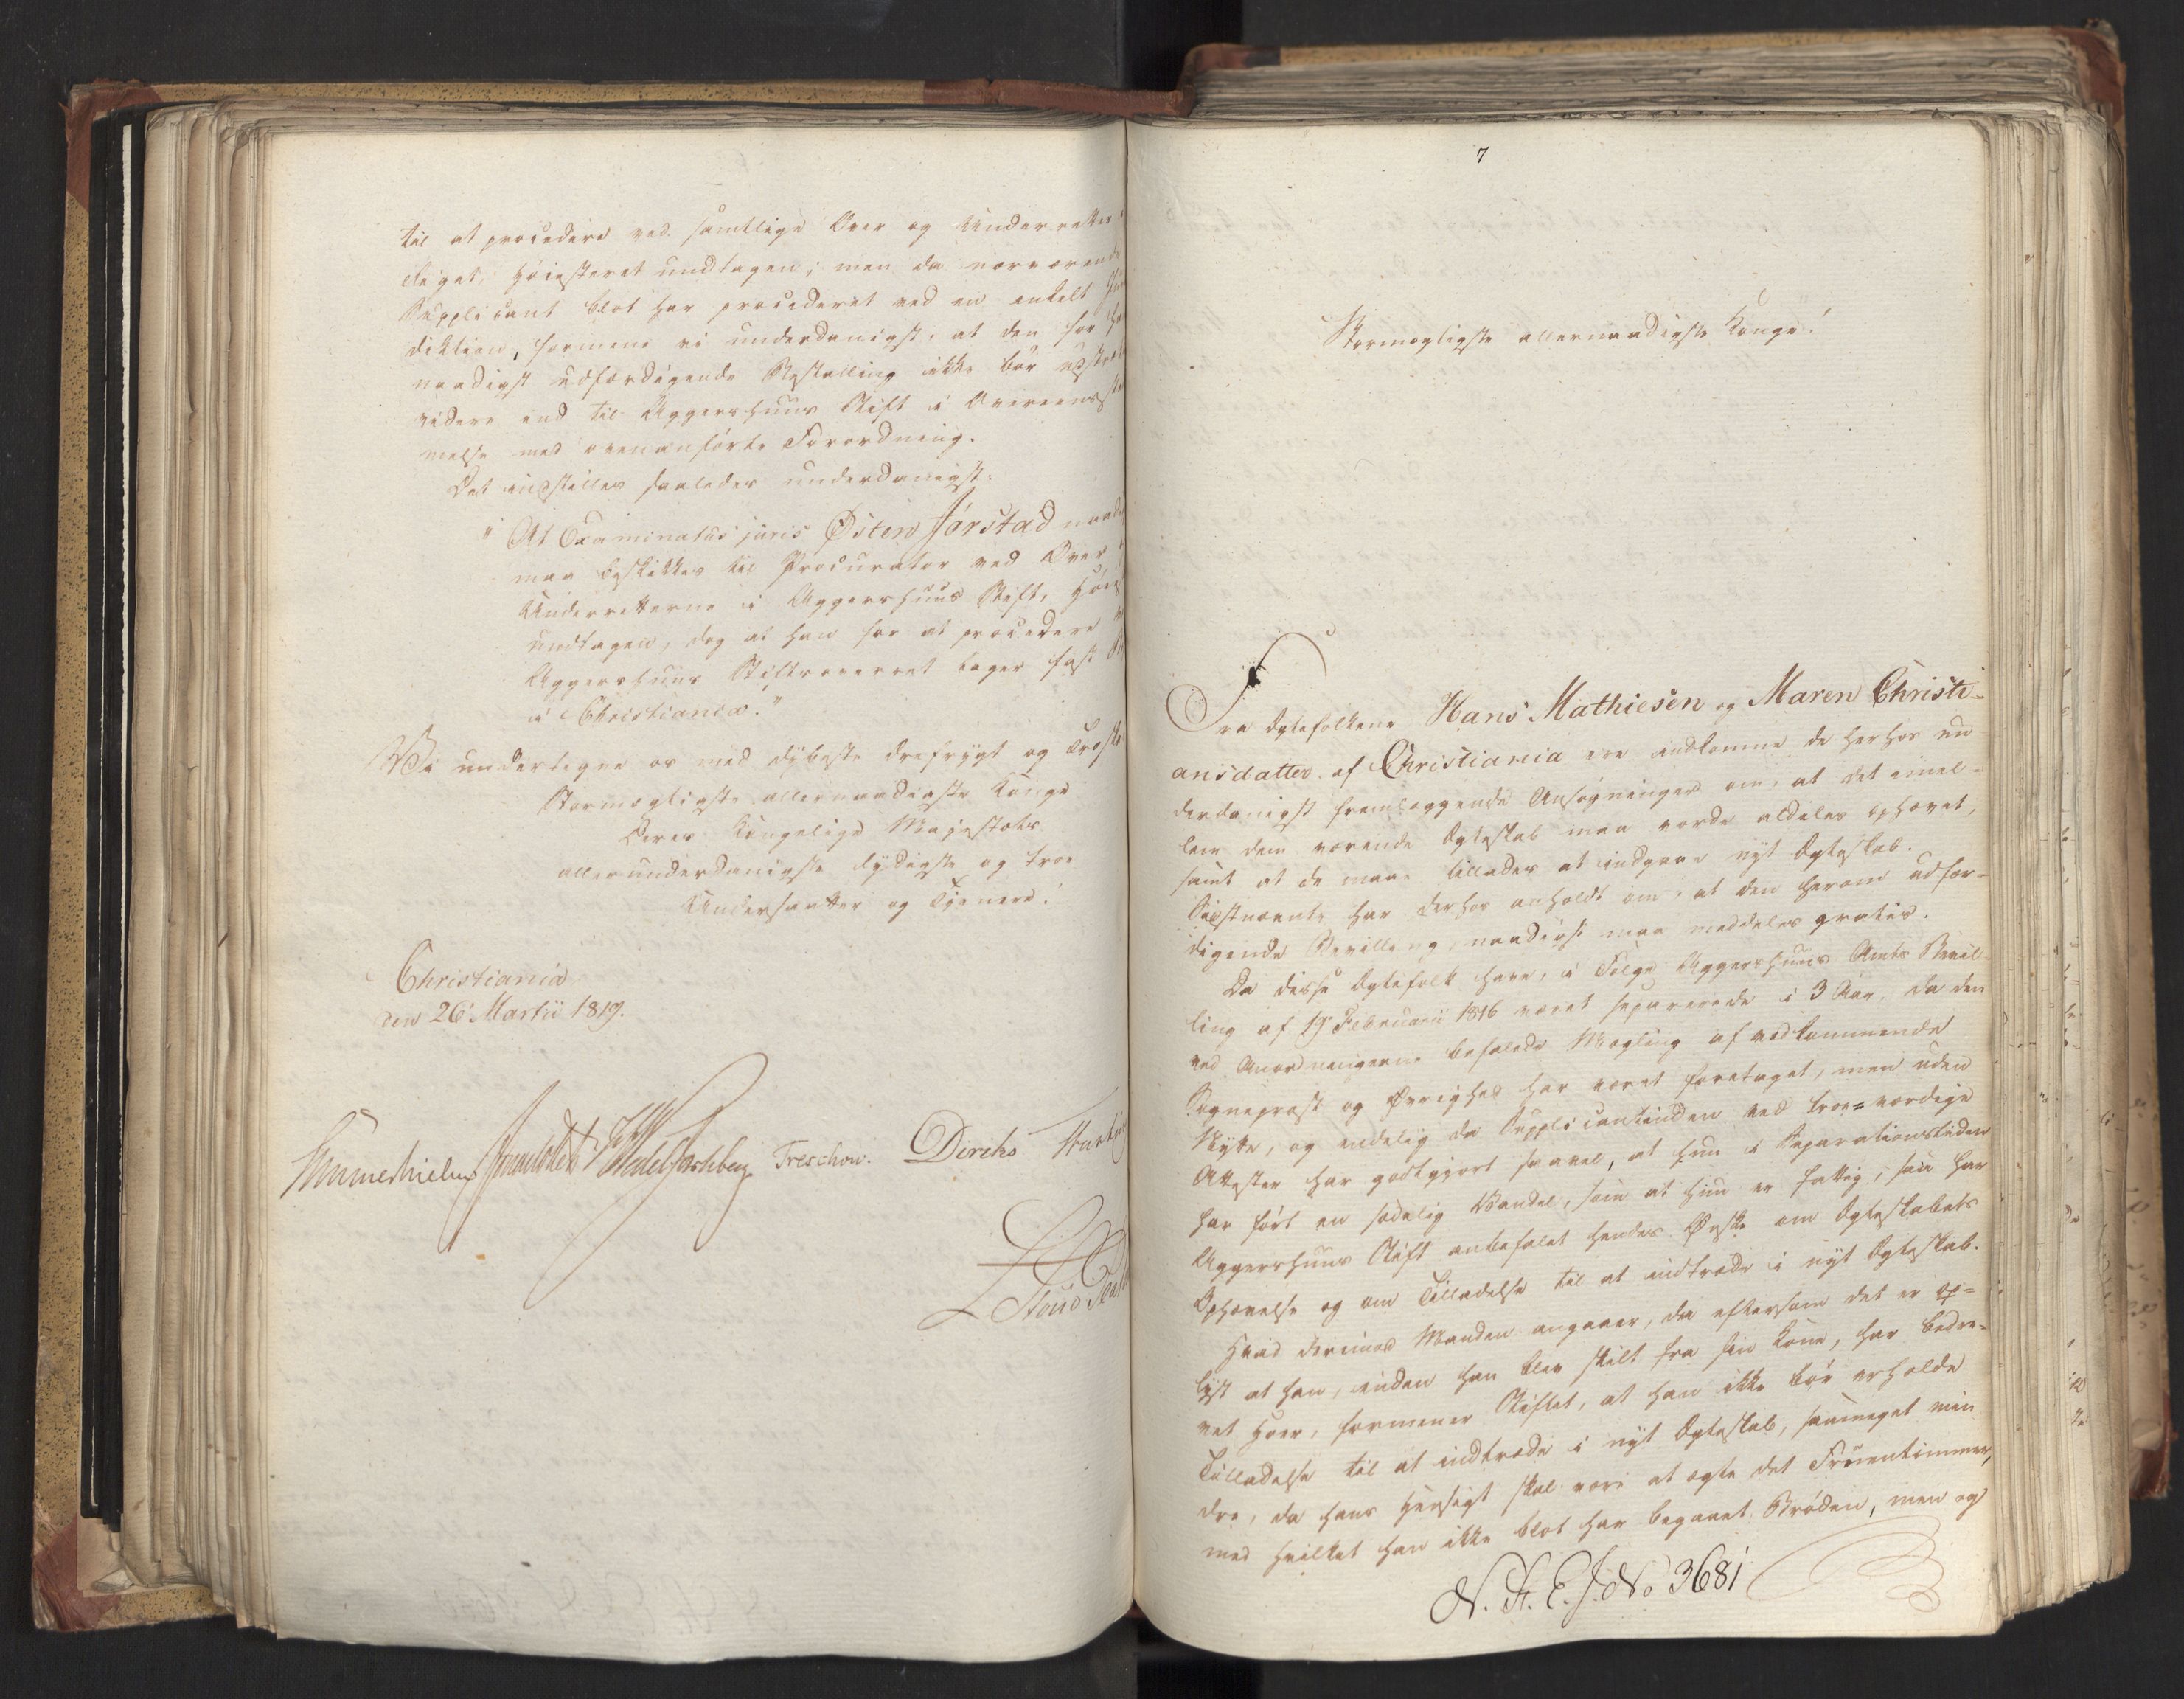 til at procedere ved samtlige Over og Underretter i
Riget, Høiesteret undtagen; men da nærværende
Supplicant blot har procederet ved en enkelt Juris
diktion, formene vi underdanigst, at den for ham
naadigst udfærdigende Bestalling ikke bør udstrækkes
videre end til Aggershuus Stift i Overeensstem
melse med ovenanførte Forordning.
Det indstilles saaledes underdanigst:
"At Examinatus juris Østen Jørstad naadigst
maa beskikkes til Procurator ved Over og
Underretterne i Aggershuus Stift, Høiesteret
undtagen, dog at han for at procedere ved
Aggershuus Stiftsoverret tager fast
i Christiania."
Vi undertegne os med dybeste Ærefrygt og Troskab
Stormægtigste allernaadigste Konge
Deres Kongelige Majestæts
allerunderdanigste lydigste og troe
Undersaatter og Tjenere!
Christiania
den 26 Martii 1819.
Sommerhielm Treschow. Diriks
7
Stormægtigste allernaadigste Konge!
Fra Ægtefolkene Hans Mathiesen og Maren Christi-
ansdatter af Christiania ere indkomne de herhos un
derdanigst fremlæggende Ansøgninger om, at det imel-
lem dem værende Ægteskab maa vorde aldeles ophævet,
samt at de maae tillades at indgaae nyt Ægteskab.
Sidstnævnte har derhos anholdt om, at den herom udfær-
digende Bevilling, naadigst maa meddeles gratis.
Da disse Ægtefolk have, i Følge Aggershuus Amts Bevil
ling af 19 Februarii 1816 været separerede i 3 Aar, da den
ved Anordningerne befalede Mægling af vedkommende
Sogneprest og Øvrighed har været foretaget, men uden
Nytte, og endelig da Supplicantinden ved troe=værdige
Attester har godtgjort saavel, at hun i Separationstiden
har ført en sædelig Vandel, som at hun er fattig, saa har
Aggershuus Stift anbefalet hendes Ønske om Ægteskabets
Ophævelse og om Tilladelse til at indtræde i nyt Ægteskab.
Hvad derimod Manden angaaer, da eftersom det er op=
lyst at han, inden han blev skilt fra sin Kone, har bedre-
vet Hoer, formener Stiftet, at han ikke bør erholde
Tilladelse til at indtræde i nyt Ægteskab, saameget min
dre, da hans Hensigt skal være at ægte det Fruentimmer,
med hvilket han ikke blot har begaaet Brøden, men og
N. R. E. J. No 3681